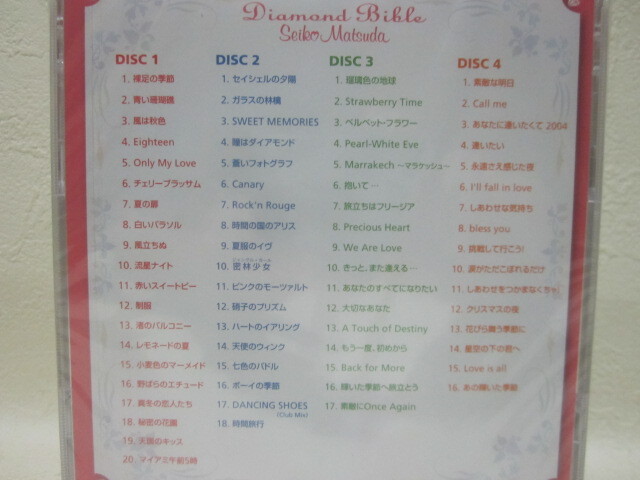 Diamond Bible
Seiko Matsuda
DISC 1
1. 裸足の季節
2. 青い珊瑚礁
3. 風は秋色
4. Eighteen
5. Only My Love
6. チェリーブラッサム
7. 夏の扉
8. 白いパラソル
9. 風立ちぬ
10. 流星ナイト
11. 赤いスイートピー
12. 制服
13. 渚のバルコニー
14. レモネードの夏
15. 小麦色のマーメイド
16. 野ばらのエチュード
17. 真冬の恋人たち
18. 秘密の花園
19. 天国のキッス
20. マイアミ午前5時
DISC 2
1. セイシェルの夕陽
2. ガラスの林檎
3. SWEET MEMORIES
4. 瞳はダイアモンド
5. 蒼いフォトグラフ
6. Canary
7. Rock'n Rouge
8. 時間の国のアリス
9. 夏服のイヴ
10. 密林少女
11. ピンクのモーツァルト
12. 硝子のプリズム
13. ハートのイアリング
14. 天使のウィンク
15. 七色のパドル
16. ボーイの季節
17. DANCING SHOES
(Club Mix)
18. 時間旅行
DISC 3
1. 瑠璃色の地球
2. Strawberry Time
3. ベルベット・フラワー
4. Pearl-White Eve
5. Marrakech ～マラケッシュ～
6. 抱いて…
7. 旅立ちはフリージア
8. Precious Heart
9. We Are Love
10. きっと、また逢える…
11. あなたのすべてになりたい
12. 大切なあなた
13. A Touch of Destiny
14. もう一度、初めから
15. Back for More
16. 輝いた季節へ旅立とう
17. 素敵にOnce Again
DISC 4
1. 素敵な明日
2. Call me
3. あなたに逢いたくて 2004
4. 逢いたい
5. 永遠さえ感じた夜
6. I'll fall in love
7. しあわせな気持ち
8. bless you
9. 挑戦して行こう!
10. 涙がただこぼれるだけ
11. しあわせをつかまなくちゃ
12. クリスマスの夜
13. 花びら舞う季節に
14. 星空の下の君へ
15. Love is all
16. あの輝いた季節